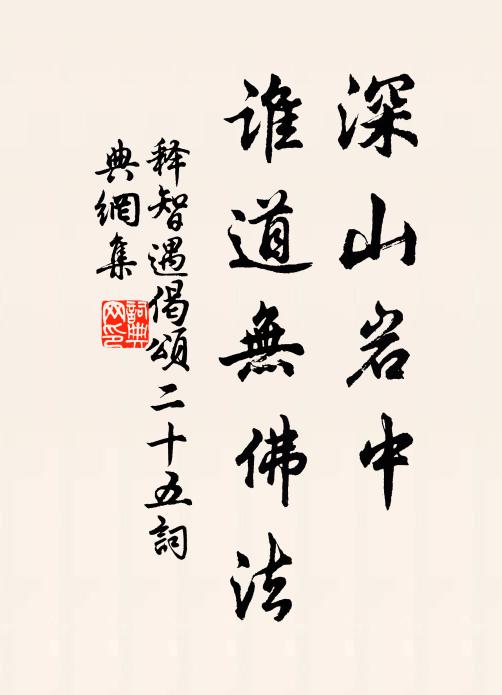 深山岩中
谁道無佛法
释智遇偈頌二十五詞
典網集
詞典网印